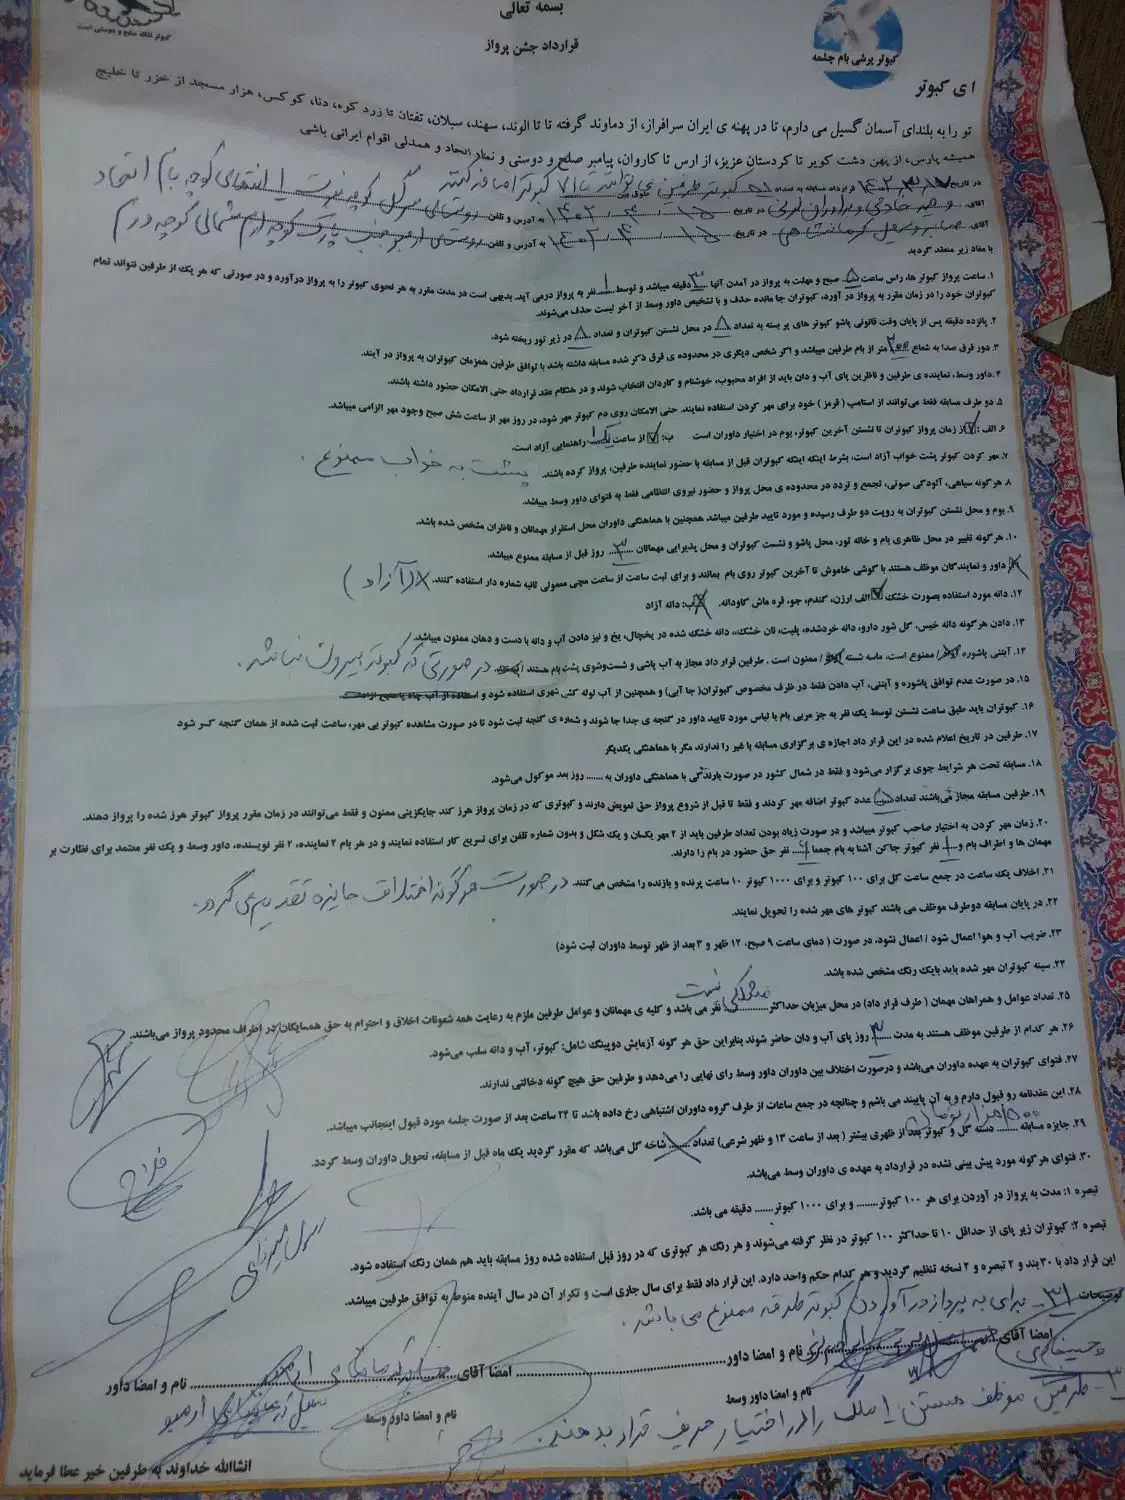 بسمه تعالی
کبوتر نشانه صلح و دوستی است
قرارداد جشن پرواز
کبوتر پرشی بام چشمه
ای کبوتر
تو را به بلندای آسمان گسیل می دارم، تا در پهنه ی ایران سرافراز، از دماوند گرفته تا الوند، سهند، سبلان، تفتان تا زرد کوه، دنا، کوکس، هزار مسجد از خزر تا خلیج
همیشه پارس، از پهن دشت کویر تا کردستان عزیز، از ارس تا کاروان، پیامبر صلح و دوستی و نماد اتحاد و همدلی اقوام ایرانی باشی
در تاریخ ۱۴۰۲/۳/۱۷ قرارداد مسابقه به تعداد ۵۱ کبوتر طرفین می توانند تا ۷۱ کبوتر اضافه کنند
آقای در تاریخ ۱۴۰۲/۴/۱۵ به آدرس و تلفن روستای
آقای در تاریخ ۱۴۰۲/۴/۱۵ به آدرس و تلفن روستای
با مفاد زیر منعقد گردید
۱. ساعت پرواز کبوتر ها، راس ساعت ۵ صبح و مهلت به پرواز در آمدن آنها ۳ دقیقه میباشد و توسط ۱ نفر به پرواز درمی آید. بدیهی است در مدت مقرر به هر نحوی کبوتر را به پرواز درآورد و در صورتی که هر یک از طرفین نتواند تمام
کبوتران خود را در زمان مقرر به پرواز در آورد، کبوتران جا مانده حذف و با تشخیص داور وسط از آخر لیست حذف می‌شوند.
۲. پانزده دقیقه پس از پایان وقت قانونی پاشو کبوتر های پر بسته به تعداد ۵ در محل نشستن کبوتران و تعداد ۵ در زیر تور ریخته شود.
۳. دور قرق صدا به شعاع ۲۰۰ متر از بام طرفین میباشد و اگر شخص دیگری در محدوده ی قرق ذکر شده مسابقه داشته باشد با توافق طرفین همزمان کبوتران به پرواز در آیند.
۴. داور وسط، نماینده ی طرفین و ناظرین پای آب و دان باید از افراد محبوب، خوشنام و کاردان انتخاب شوند و در هنگام عقد قرارداد حتی الامکان حضور داشته باشند.
۵. دو طرف مسابقه فقط می‌توانند از استامپ ( قرمز ) خود برای مهر کردن استفاده نمایند. حتی الامکان روی دم کبوتر مهر شود، در روز مهر از ساعت شش صبح وجود مهر الزامی میباشد.
۶. الف : از زمان پرواز کبوتران تا نشستن آخرین کبوتر، بوم در اختیار داوران است ب: از ساعت راهنمایی آزاد است.
۷. مهر کردن کبوتر پشت خواب آزاد است، بشرط اینکه اینکه کبوتران قبل از مسابقه با حضور نماینده طرفین، پرواز کرده باشند. پشت به خواب ممنوع.
۸. هرگونه سیاهی، آلودگی صوتی، تجمع و تردد در محدوده ی محل پرواز و حضور نیروی انتظامی فقط به فتوای داور وسط میباشد.
۹. بوم و محل نشستن کبوتران به رویت دو طرف رسیده و مورد تایید طرفین میباشد همچنین با هماهنگی داوران محل استقرار مهمانان و ناظران مشخص شده باشد.
۱۰. هرگونه تغییر در محل ظاهری بام و خانه تور، محل پاشو و نشست کبوتران و محل پذیرایی مهمانان ۳ روز قبل از مسابقه ممنوع میباشد.
داور و نمایندگان موظف هستند با گوشی خاموش تا آخرین کبوتر روی بام بمانند و برای ثبت ساعت از ساعت مچی معمولی ثانیه شمار دار استفاده کنند. آزاد )
۱۲. دانه مورد استفاده بصورت خشک الف ارزن، گندم، جو، قره ماش گاودانه. ب: دانه آزاد
۱۳. دادن هرگونه دانه خیس، گل شور دارو، دانه خردشده، پلیت، نان خشک، دانه خشک شده در یخچال، یخ و نیز دادن آب و دانه با دست و دهان ممنون میباشد.
۱۴. آبتنی پاشوره آزاد / ممنوع است، ماسه شسته آزاد / ممنون است . طرفین قرار داد مجاز به آب پاشی و شست‌وشوی پشت بام هستند / در صورتی که کبوتر بیرون نباشد.
۱۵. در صورت عدم توافق پاشوره و آبتنی، آب دادن فقط در ظرف مخصوص کبوتران( جا آبی) و همچنین از آب لوله کشی شهری استفاده شود و استفاده از آب چاه یا منبع آزاد است.
۱۶. کبوتران باید طبق ساعت نشستن توسط یک نفر به جز مربی بام با لباس مورد تایید داور در گنجه ی جدا جا شوند و شماره ی گنجه ثبت شود تا در صورت مشاهده کبوتر بی مهر، ساعت ثبت شده از همان گنجه کسر شود
۱۷. طرفین در تاریخ اعلام شده در این قرار داد اجازه ی برگزاری مسابقه با غیر را ندارند مگر با هماهنگی یکدیگر
۱۸. مسابقه تحت هر شرایط جوی برگزار می‌شود و فقط در شمال کشور در صورت بارندگی با هماهنگی داوران به ....... روز بعد موکول می‌شود.
۱۹. طرفین مسابقه مجاز می‌باشند تعداد عدد کبوتر اضافه مهر کردند و فقط تا قبل از شروع پرواز حق تعویض دارند و کبوتری که در زمان پرواز هرز کند جایگزینی ممنون و فقط می‌توانند در زمان مقرر پرواز کبوتر هرز شده را پرواز دهند.
۲۰. زمان مهر کردن به اختیار صاحب کبوتر میباشد و در صورت زیاد بودن تعداد طرفین باید از ۲ مهر یکسان و یک شکل و بدون شماره تلفن برای تسریع کار استفاده نمایند و در هر بام ۲ نماینده، ۲ نفر نویسنده، داور وسط و یک نفر معتمد برای نظارت بر
مهمان ها و اطراف بام و ۱ نفر کبوتر جاکن آشنا به بام جمعا نفر حق حضور در بام را دارند.
۲۱. اخلاف یک ساعت در جمع ساعت کل برای ۱۰۰ کبوتر و برای ۱۰۰۰ کبوتر ۱۰ ساعت پرنده و بازنده را مشخص می‌کنند. در صورت هرگونه اختلاف جایزه تقدیم می گردد.
۲۲. در پایان مسابقه دوطرف موظف می باشند کبوتر های مهر شده را تحویل نمایند.
۲۳. ضریب آب و هوا اعمال شود / اعمال نشود، در صورت ( دمای ساعت ۹ صبح، ۱۲ ظهر و ۳ بعد از ظهر توسط داوران ثبت شود)
۲۴. سینه کبوتران مهر شده باید بایک رنگ مشخص شده باشد.
۲۵. تعداد عوامل و همراهان مهمان ( طرف قرار داد) در محل میزبان حداکثر مشکلی نیست نفر می باشد و کلیه ی مهمانان و عوامل طرفین ملزم به رعایت همه شعونات اخلاق و احترام به حق همسایگان در اطراف محدود پرواز می‌باشند.
۲۶. هر کدام از طرفین موظف هستند به مدت ۳ روز پای آب و دان حاضر شوند بنابراین حق هر گونه آزمایش دوپینگ شامل: کبوتر، آب و دانه سلب می‌شود.
۲۷. فتوای کبوتران به عهده داوران می‌باشد و درصورت اختلاف بین داوران داور وسط رای نهایی را می‌دهد و طرفین حق هیچ گونه دخالتی ندارند.
۲۸. این عقدنامه رو قبول دارم و به آن پایبند می باشم و چنانچه در جمع ساعات از طرف گروه داوران اشتباهی رخ داده باشد تا ۲۴ ساعت بعد از صورت جلسه مورد قبول اینجانب میباشد.
۲۹. جایزه مسابقه ....... دسته گل و کبوتر بعد از ظهری بیشتر ( بعد از ساعت ۱۳ و ظهر شرعی) تعداد ....... شاخه گل می‌باشد که مقرر گردید یک ماه قبل از مسابقه، تحویل داوران وسط گردد. ۵۰۰ هزار تومان
۳۰. فتوای هرگونه مورد پیش بینی نشده در قرارداد به عهده ی داوران وسط می‌باشد.
تبصره ۱: مدت به پرواز در آوردن برای هر ۱۰۰ کبوتر........ و برای ۱۰۰۰ کبوتر....... دقیقه می باشد.
تبصره ۲: کبوتران زیر پای از حداقل ۱۰ تا حداکثر ۱۰۰ کبوتر در نظر گرفته می‌شوند و هر رنگ هر کبوتری که در روز قبل استفاده شده روز مسابقه باید هم همان رنگ استفاده شود.
این قرار داد با ۳۰ بند و ۲ تبصره و ۲ نسخه تنظیم گردید و هر کدام حکم واحد دارد. این قرار داد فقط برای سال جاری است و تکرار آن در سال آینده منوط به توافق طرفین میباشد.
توضیحات ۳۱- برای به پرواز در آوردن کبوتر طرقه ممنوع می باشد.
امضا آقای نام و امضا داور امضا آقای نام و امضا داور
نام و امضا داور وسط نام و امضا داور وسط
طرفین موظف هستن را در اختیار حریف قرار بدهند.
انشاالله خداوند به طرفین خیر عطا فرماید